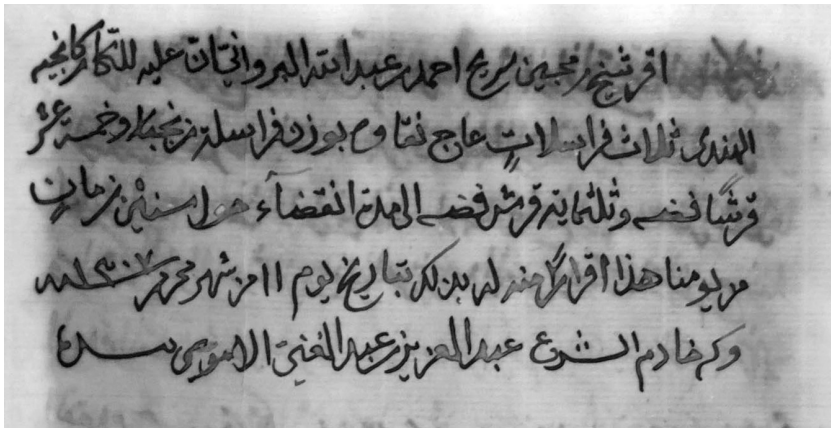 اقر شيخ بن مجبين بن سريح احمد بن عبد الله البرواني بان عليه للتاكر كانجيه
الهندي ثلاث فراسلات عاج نقاوه بوزن فراسلة زنجبار وخمسة عشر
قرشًا فضه وثلثماية قرش فضه الى مدة انقضآء حول سنتين زمانٍ
من يومنا هذا اقرارًا منه له بذلك بتاريخ يوم ١١ من شهر محرم سنة ١٣٠٧
وكتبه خادم الشرع عبد العزيز بن عبد الغني الاموي بيده